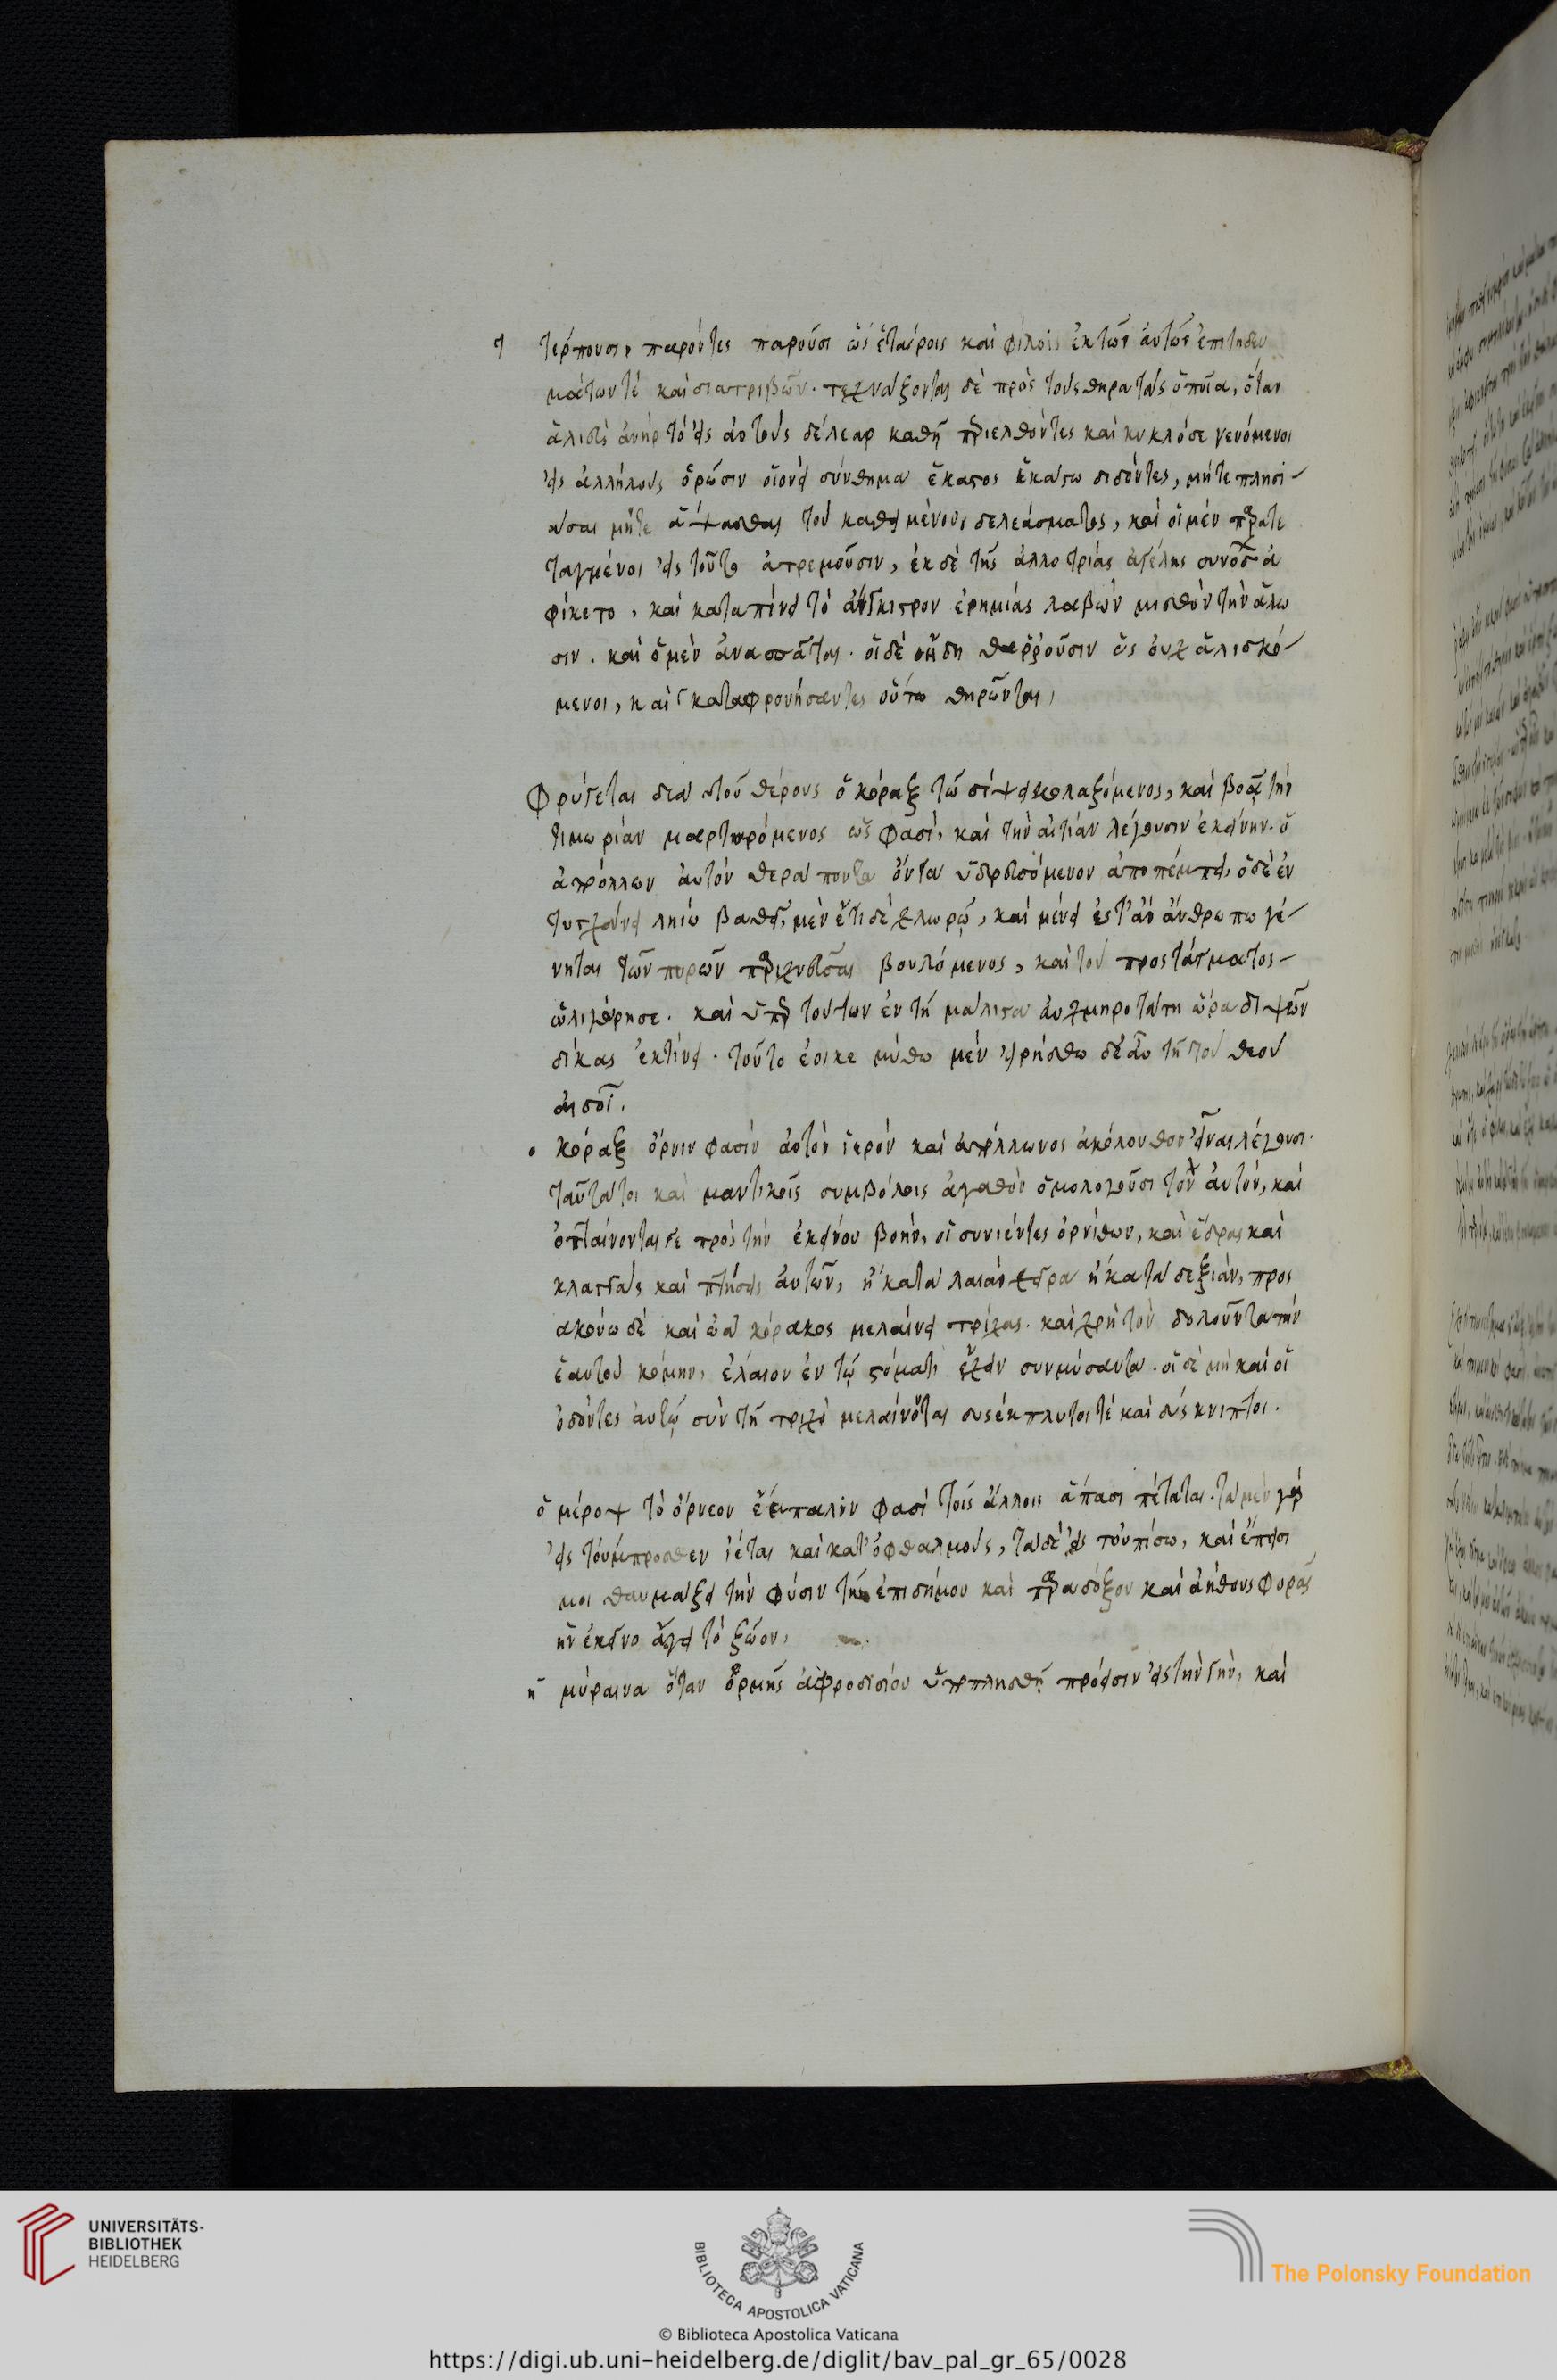 τέρπουσι, παρόντες παροῦσι ὡς ἑταίροις καὶ φίλοις ἐκ τῶν αὐτῶν ἐπιτηδευ
μάτων τὲ καὶ διατριβῶν. τεχνάζονται δὲ πρὸς τοὺς θηρατὰς ὁποῖα, ὅταν
ἁλιεὺς ἀνὴρ τὸ εἰς αὐτοὺς δέλεαρ καθῇ περιελθόντες καὶ κυκλόσε γενόμενοι
εἰς ἀλλήλους ὁρῶσιν οἱονεὶ σύνθημα ἕκαστος ἑκάστω διδόντες, μήτε πλησι-
άσαι μήτε ἅψασθαι τοῦ καθειμένου δελεάσματος, καὶ οἱ μὲν παρατε
ταγμένοι εἰς τοῦτο ἀτρεμοῦσιν, ἐκ δὲ τῆς ἀλλοτρίας ἀγέλης συνόδ ἀ
φίκετο, καὶ καταπίνει τὸ ἄγκιστρον ἐρημίας λαβὼν μισθὸν τὴν ἅλω
σιν. καὶ ὁ μὲν ἀνασπᾶται. οἱ δὲ ἤδη θαῤῥοῦσιν ὡς οὐχ ἁλισκό-
μενοι, καὶ καταφρονήσαντες οὕτω θηρῶνται,
Φρύγεται διὰ τοῦ θέρους ὁ κόραξ τῶ δίψει κολαζόμενος, καὶ βοᾷ τὴν
τιμωρίαν μαρτυρόμενος ὥς φασί, καὶ τὴν αἰτίαν λέγουσιν ἐκείνην. ὁ
ἀπόλλων αὐτὸν θεράποντα ὄντα ὑδρευσόμενον ἀποπέμπει, ὁ δὲ ἐν
τυγχάνει ληίω βαθεῖ μὲν ἔτι δὲ χλωρῷ, καὶ μένει ἔστ' ἂν ἄνθρωπω γέ-
νηται τῶν πυρῶν παραχναῦσαι βουλόμενος, καὶ τοῦ προστάγματος-
ὠλιγώρησε. καὶ ὑπὲρ τούτων ἐν τῇ μάλιστα αὐχμηροτάτη ὥρα διψῶν
δίκας ἐκτίνει. τοῦτο ἔοικε μύθω μὲν εἰρήσθω δ' οὖν τῇ τοῦ θεοῦ
αἰδοῖ.
κόραξ ὄρνιν φασὶν αὐτὸν ἱερὸν καὶ ἀπόλλωνος ἀκόλουθον εἶναι λέγουσι.
ταῦτά τοι καὶ μαντικοῖς συμβόλοις ἀγαθὸν ὁμολογοῦσι τὸν αὐτὸν, καὶ
ὀπταίνονταί γε πρὸς τὴν ἐκείνου βοὴν, οἱ συνιέντες ὀρνίθων, καὶ ἕδρας καὶ
κλαγγὰς καὶ πτήσεις αὐτῶν, ἢ κατὰ λαιὰν χεῖρα ἢ κατὰ δεξιάν, προς
ακούω δὲ καὶ ὠὰ κόρακος μελαίνει τρίχας. καὶ χρὴ τὸν δολοῦντα τὴν
ἑαυτοῦ κόμην, ἔλαιον ἐν τῷ στόματι ἔχειν συνμύσαντα. εἰ δὲ μὴ καὶ οἱ
ὀδόντες αὐτῷ σὺν τῇ τριχὶ μελαίνονται δυσέκπλυτοί τὲ καὶ δύσκνιπτοι.
ὁ μέροψ τὸ ὄρνεον ἔμπαλιν φασὶ τοῖς ἄλλοις ἅπασι πέταται. τὰ μὲν γὰρ
εἰς τοὔμπροσθεν ἵεται καὶ κατ' ὀφθαλμοὺς, τὰ δὲ εἰς τοὐπίσω, καὶ ἔπεισι
μοι θαυμάζει τὴν φύσιν τῆς ἐπισήμου καὶ παραδόξου καὶ ἀήθους φορᾶς
ἣν ἐκεῖνο ἄγει τὸ ζῶον,
ἡ μύραινα ὅταν ὁρμῆς ἀφροδισίου ὑποπλησθῇ πρόεισιν εἰς τὴν γὴν, καὶ
UNIVERSITÄTS-
BIBLIOTHEK
HEIDELBERG
BIBLIOTECA APOSTOLICA VATICANA
The Polonsky Foundation
© Biblioteca Apostolica Vaticana
https://digi.ub.uni-heidelberg.de/diglit/bav_pal_gr_65/0028